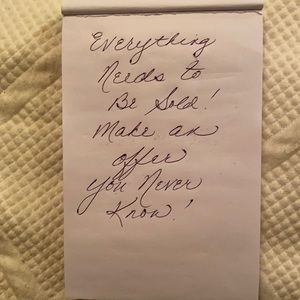 Everything
Needs to
Be Sold!
Make an
offer
you Never
Know!